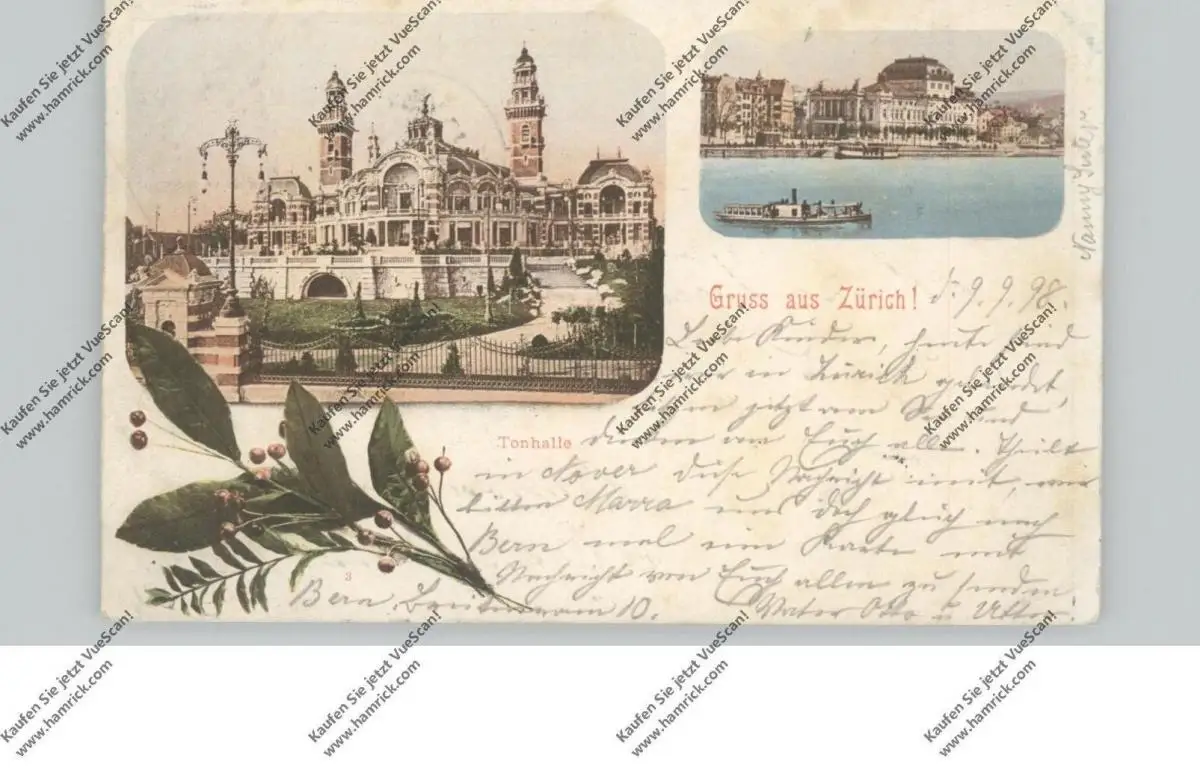 Gruss aus Zürich! d. 9.9.98.
Liebe Kinder, heute sind
wir in Zürich gelandet
jetzt am
Tonhalle
denken an Euch alle. Theilt
in Nover diese Nachricht mit, wir
bitten Marra uns doch gleich nach
Bern mal eine Karte mit
Nachricht von Euch allen zu senden
3
Bern, 10. Vater Otto u.
Nanny
Kaufen Sie jetzt VueScan!
www.hamrick.com
Kaufen Sie jetzt VueScan!
www.hamrick.com
Kaufen Sie jetzt VueScan!
www.hamrick.com
Kaufen Sie jetzt VueScan!
www.hamrick.com
Kaufen Sie jetzt VueScan!
www.hamrick.com
Kaufen Sie jetzt VueScan!
www.hamrick.com
Kaufen Sie jetzt VueScan!
www.hamrick.com
Kaufen Sie jetzt VueScan!
www.hamrick.com
Kaufen Sie jetzt VueScan!
www.hamrick.com
Kaufen Sie jetzt VueScan!
www.hamrick.com
Kaufen Sie jetzt VueScan!
www.hamrick.com
Kaufen Sie jetzt VueScan!
www.hamrick.com